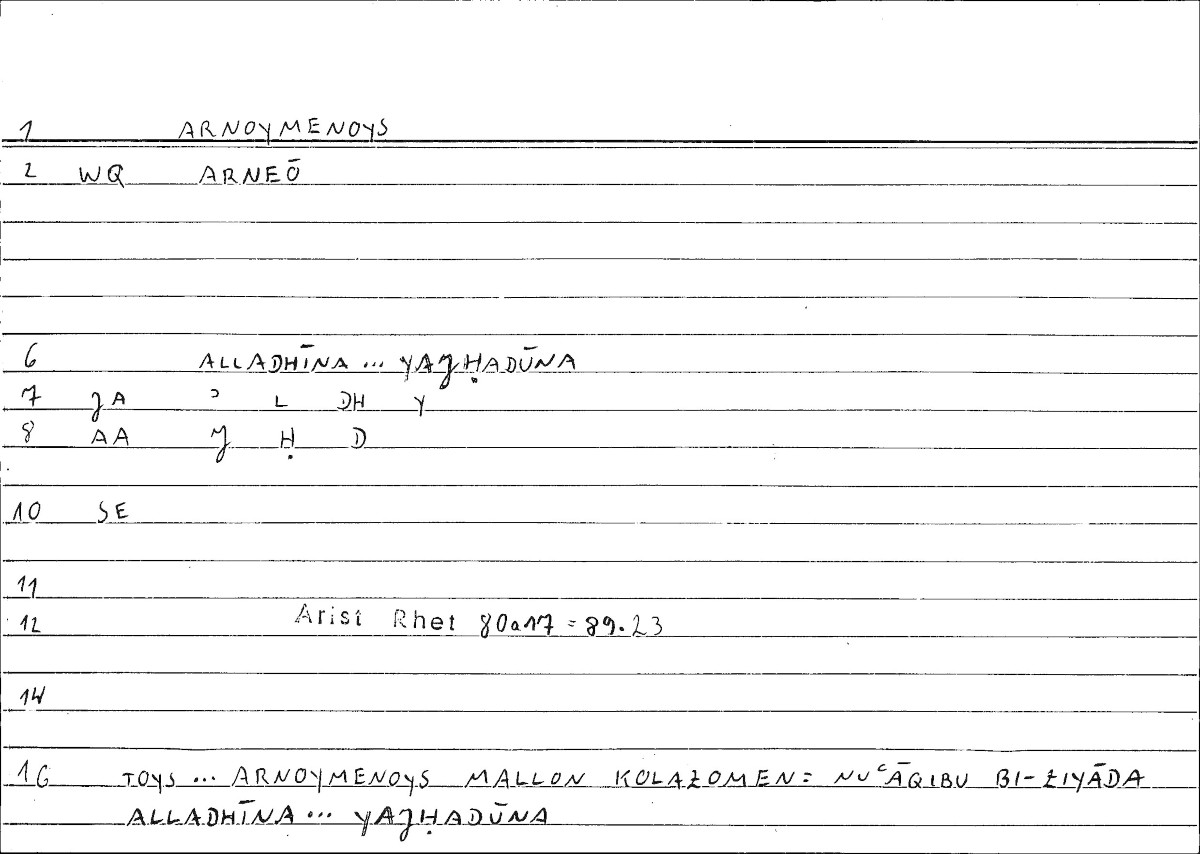 1 ARNOYMENOYS
2 WQ ARNEŌ
6 ALLADHĪNA ... YAJḤADŪNA
7 JA ʾ L DH Y
8 AA J Ḥ D
10 SE
11
12 Arist Rhet 80a17 = 89.23
14
16 TOYS ... ARNOYMENOYS MALLON KOLAZOMEN = NUʿĀQIBU BI-ZIYĀDA
ALLADHĪNA ... YAJḤADŪNA